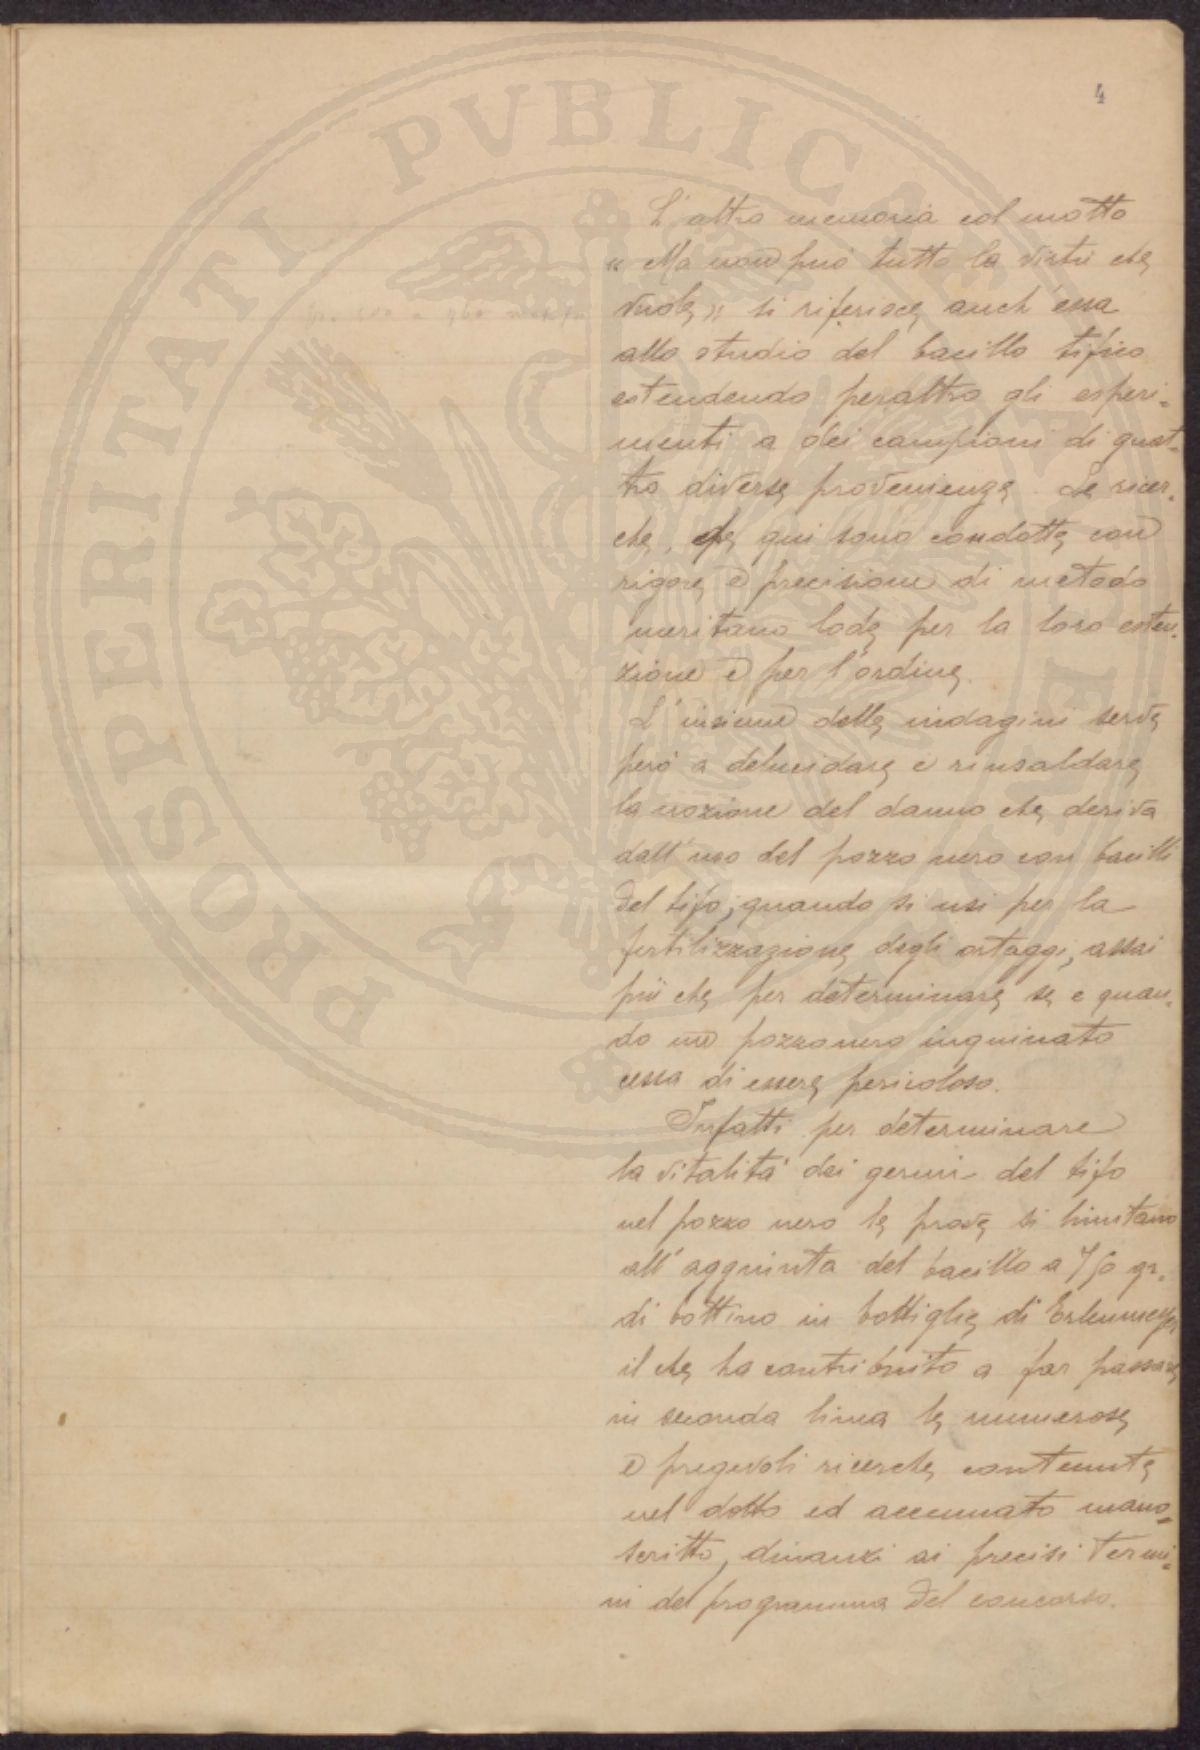 4
PROSPERITATI PUBLICAE
L'altra memoria col motto
« Ma non può tutto la virtù che
vuole » si riferisce anch'essa
allo studio del bacillo tifico
estendendo peraltro gli esperi-
menti a dei campioni di quat-
tro diverse provenienze. Le ricer-
che, che qui sono condotte con
rigore e precisione di metodo
meritano lode per la loro esten-
zione e per l'ordine.
L'insieme delle indagini serve
però a delucidare e rinsaldare
la nozione del danno che deriva
dall'uso del pozzo nero con bacilli
del tifo, quando si usi per la
fertilizzazione degli ortaggi, assai
più che per determinare se e quan-
do un pozzonero inquinato
cessa di essere pericoloso.
Infatti per determinare
la vitalità dei germi del tifo
nel pozzo nero le prove si limitano
all'aggiunta del bacillo a gr.
di bottino in bottiglie di Erlenmeyer
il che ha contribuito a far passare
in seconda linea le numerose
e pregevoli ricerche contenute
nel dotto ed accurato mano-
scritto, dinanzi ai precisi termi-
ni del programma del concorso.